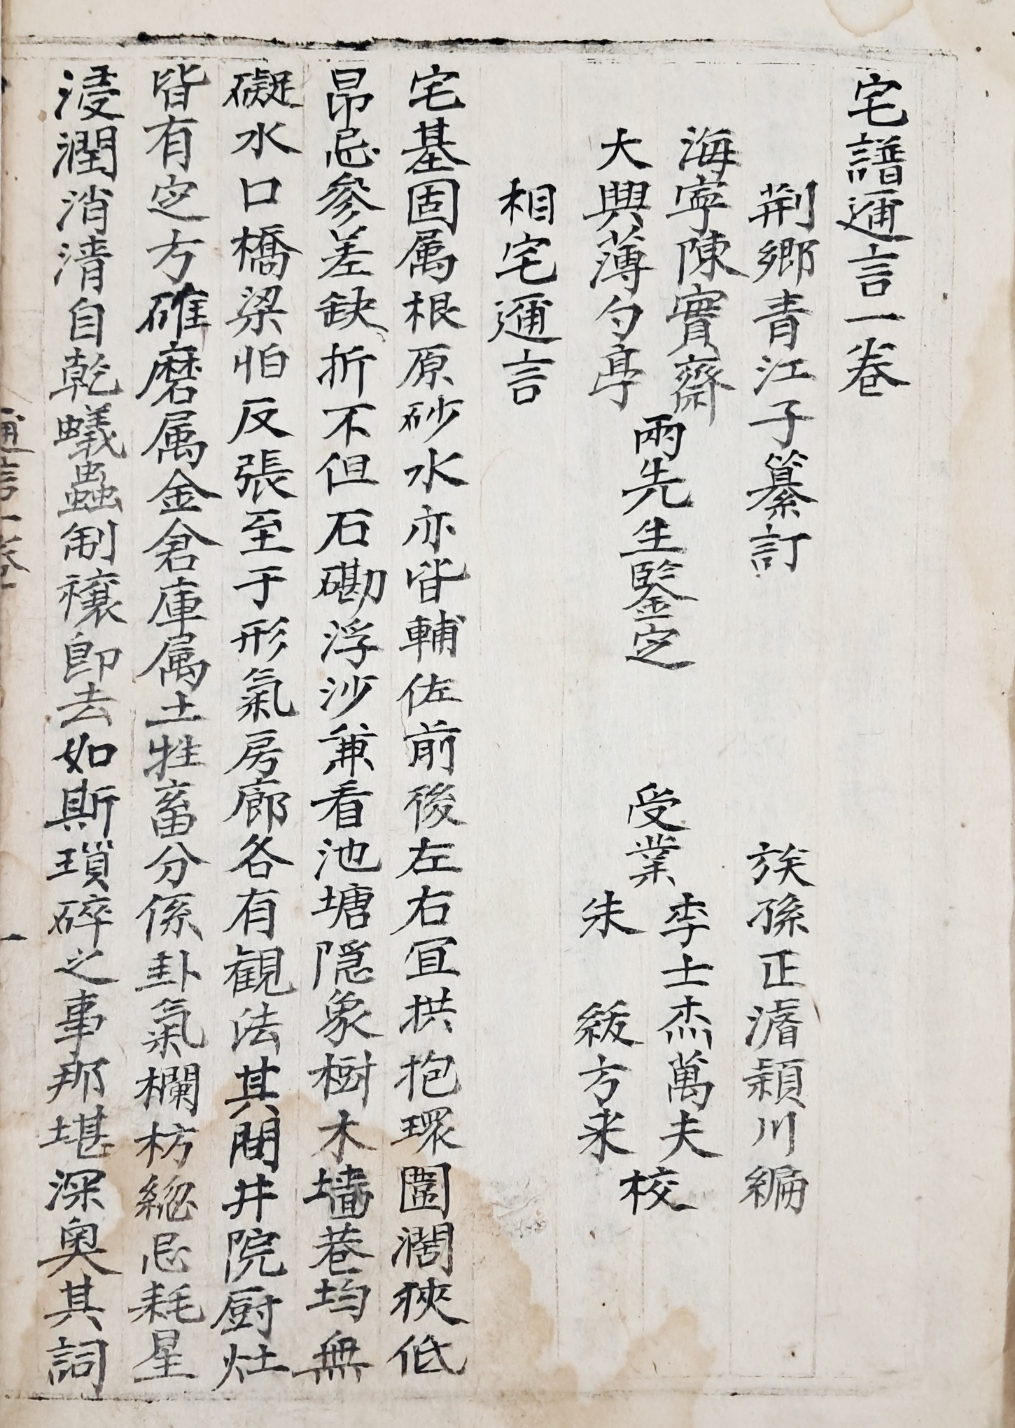 宅譜邇言一卷
荆鄉青江子纂訂 族孫正濳穎川編
海寧陳實齋
大興薄勺亭
兩先生鑒定
受業
李士杰萬夫
朱 紱方来
校
相宅邇言
宅基固属根原砂水亦皆輔佐前後左右冝拱抱環圍濶狹低
昂忌參差缺折不但石磡浮沙兼看池塘隠象樹木墻巷均無
礙水口橋梁怕反張至于形氣房廊各有観法其閒井院厨灶
皆有定方碓磨属金倉庫属土牲畜分係卦氣欄枋縂忌耗星
浸潤消清自乾蟻蟲制禳即去如斯瑣碎之事那堪深奥其詞
邇言一卷 一